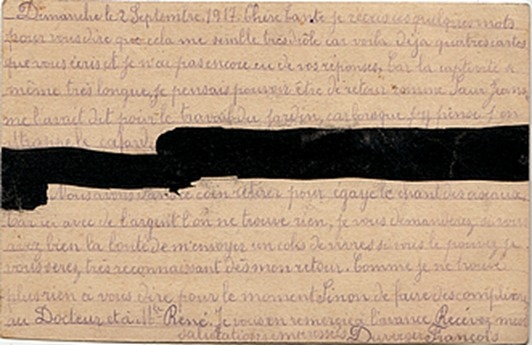 Dimanche le 2 Septembre 1917. Chère tante je vous écris quelques mots
pour vous dire que cela me semble très drôle car voila déja quatres cartes
que vous écris et je n'ai pas encore eu de vos réponses, car la captivité
même très longue, je pensais pouvoir être de retour comme
me l'avait dit pour le travail du jardin, car lorsque j'y pense j'en
attrape le cafard
Nous avons coin retirer pour égayer le chant des oiseaux
Car ici avec de l'argent l'on ne trouve rien, je vous demanderai si vous
aviez bien la bonté de m'envoyer un colis de vivres si vous le pouvez je
vous serez très reconnaissant dès mon retour. Comme je ne trouve
plus rien à vous dire pour le moment Sinon de faire des compliments
au Docteur et à René. Je vous en remercie à l'avance Recevez mes
salutations Duverger François